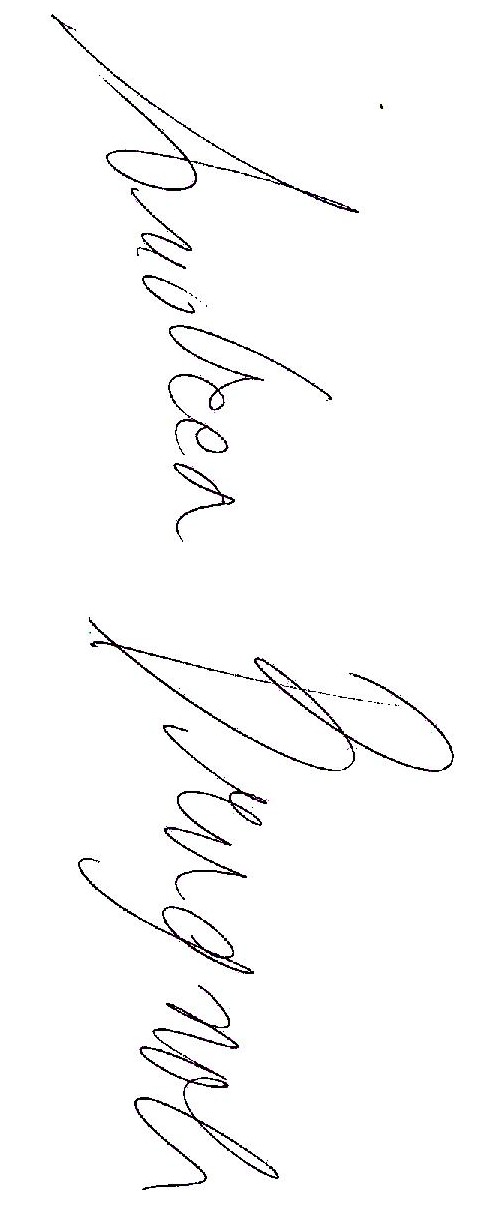 Andrea Brugnoli